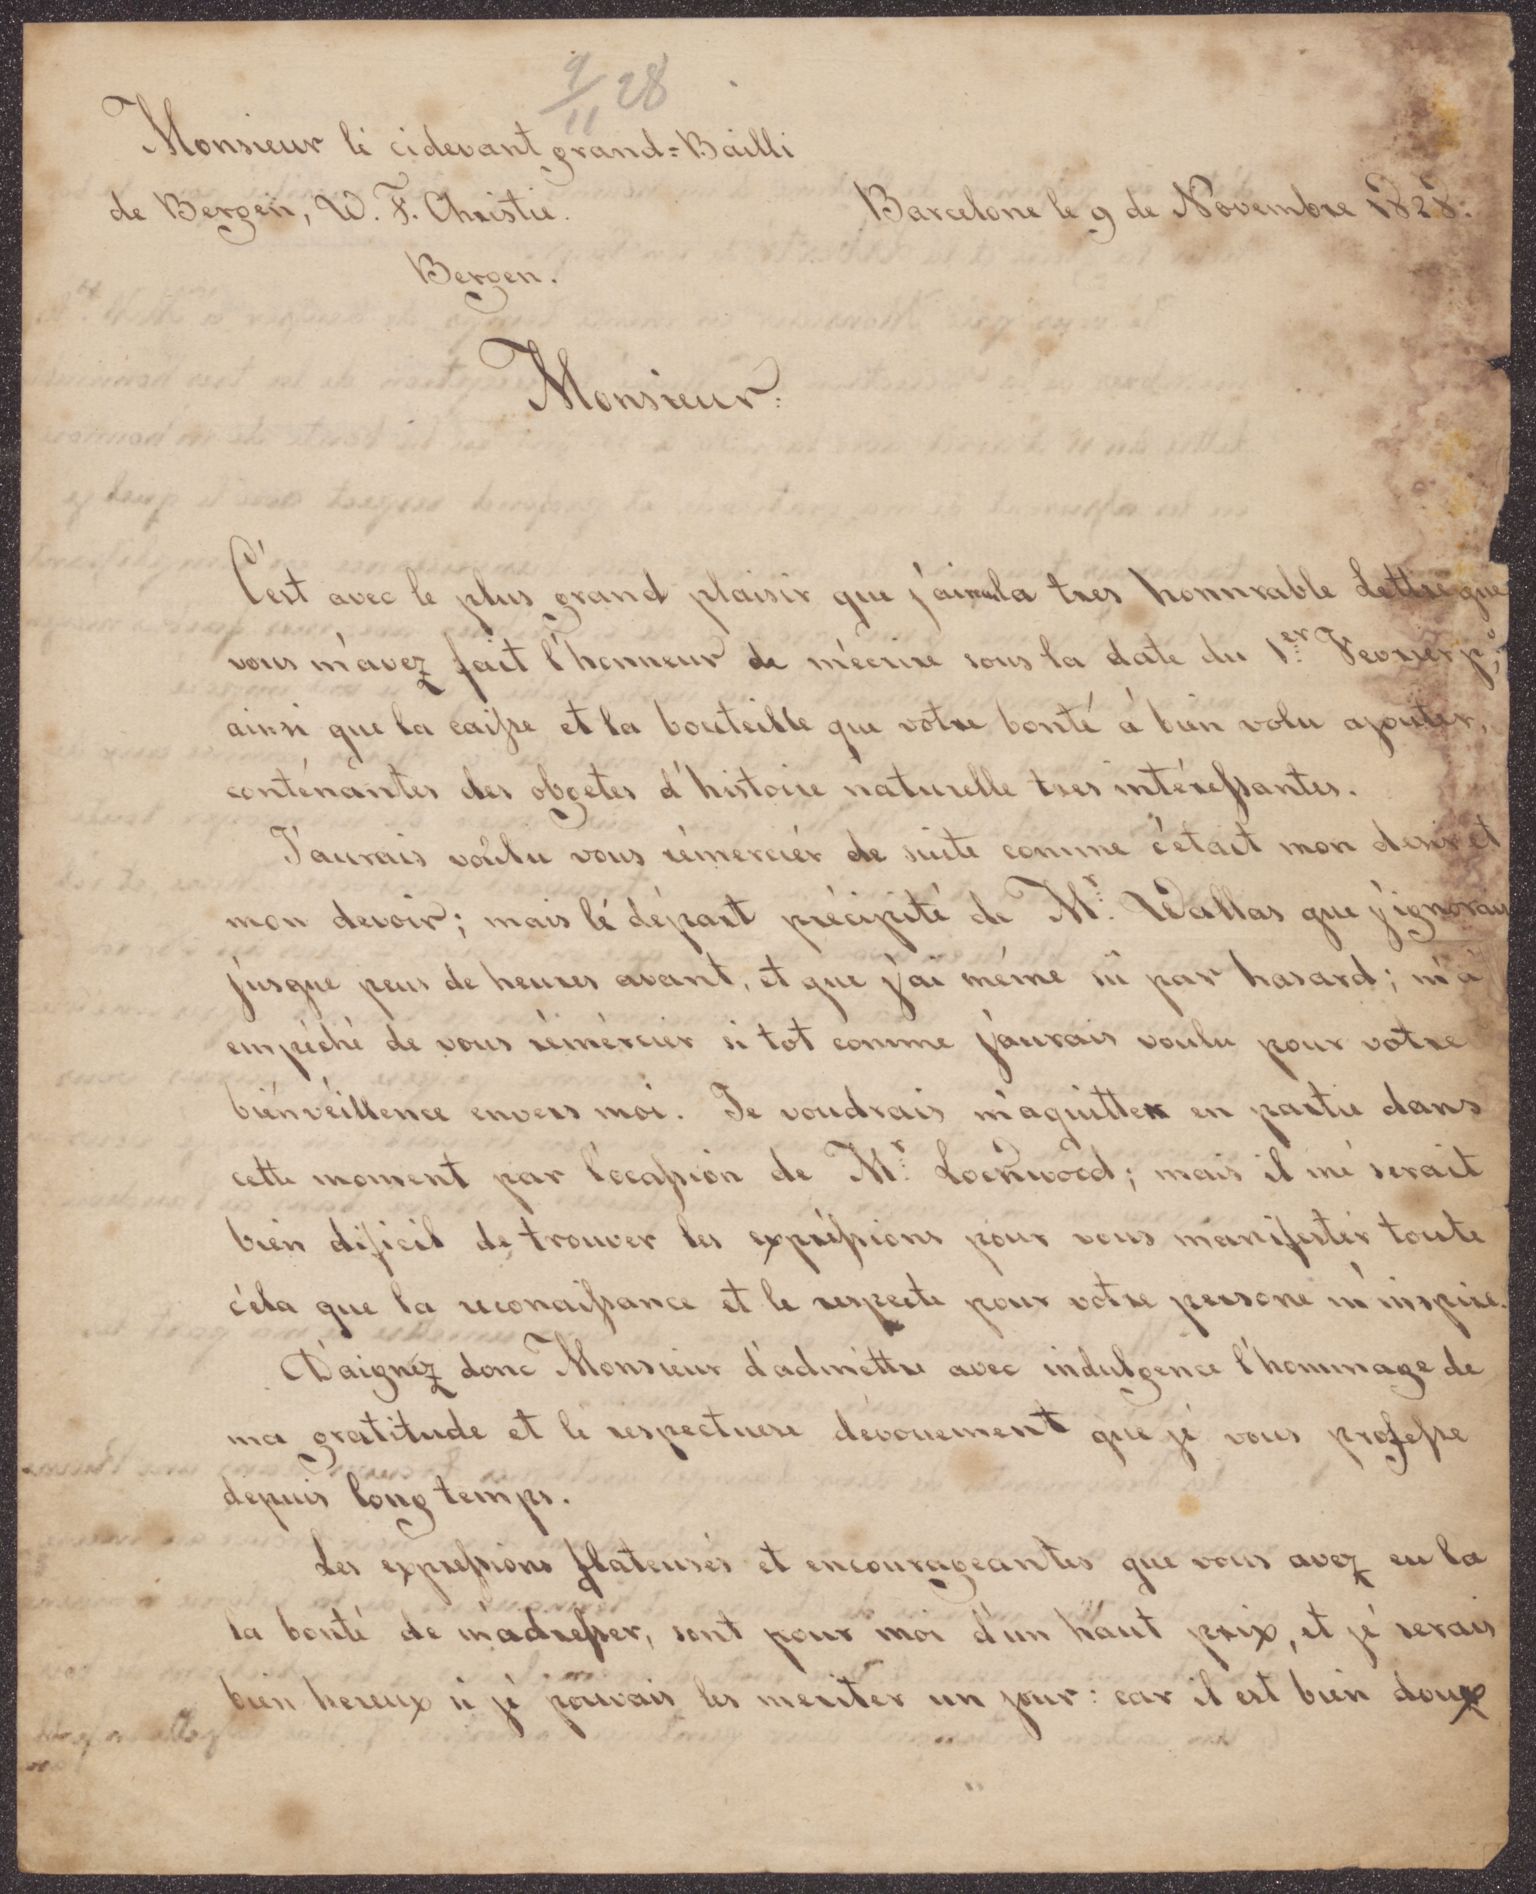 9/11 28
Monsieur le cidevant grand-Bailli
de Bergen, W. F. Christie.
Barcelone le 9 de Novembre 1828.
Bergen.
Monsieur:
C'est avec le plus grand plaisir que j'ai la tres honnrable Lettre que
vous m'avez fait l'honneur de m'ecrire sous la date du 1er Fevrier p.º,
ainsi que la caisse et la bouteille que votre bonté á bien volu ajouter,
conténantes des obgetes d'histoire naturelle tres intéressantes.
J'aurais voulu vous rémerciér de suite comme c'était mon desir et
mon devoir; mais lé départ précipité de Mr. Wallas que j'ignorais
jusque peus de heures avant, et que j'ai méme sü par hasard; m'a
empéché de vous rémércier si tot comme j'aurais voulu pour votre
biénvéillence envers moi. Je voudrais m'aquitter en partie dans
cette moment par l'ocassion de Mr. Lockwood; mais il mé serait
bien dificil de trouver les expréssions pour vous manifestér toute
céla que la reconaissance et le respecte pour votre persone m'inspire.
Daignéz donc Monsieur d'adméttre avec indulgence l'hommage de
ma gratitude et le respectuese dévouement que jé vous professe
depuis long temps.
Les expressions flateusés et encourageantes que vous avez eu la
la bonté de m'adresser, sont pour moi d'un haut prix, et jé serais
bien hereux si jé pouvais les meriter un jour: car il est bien doux